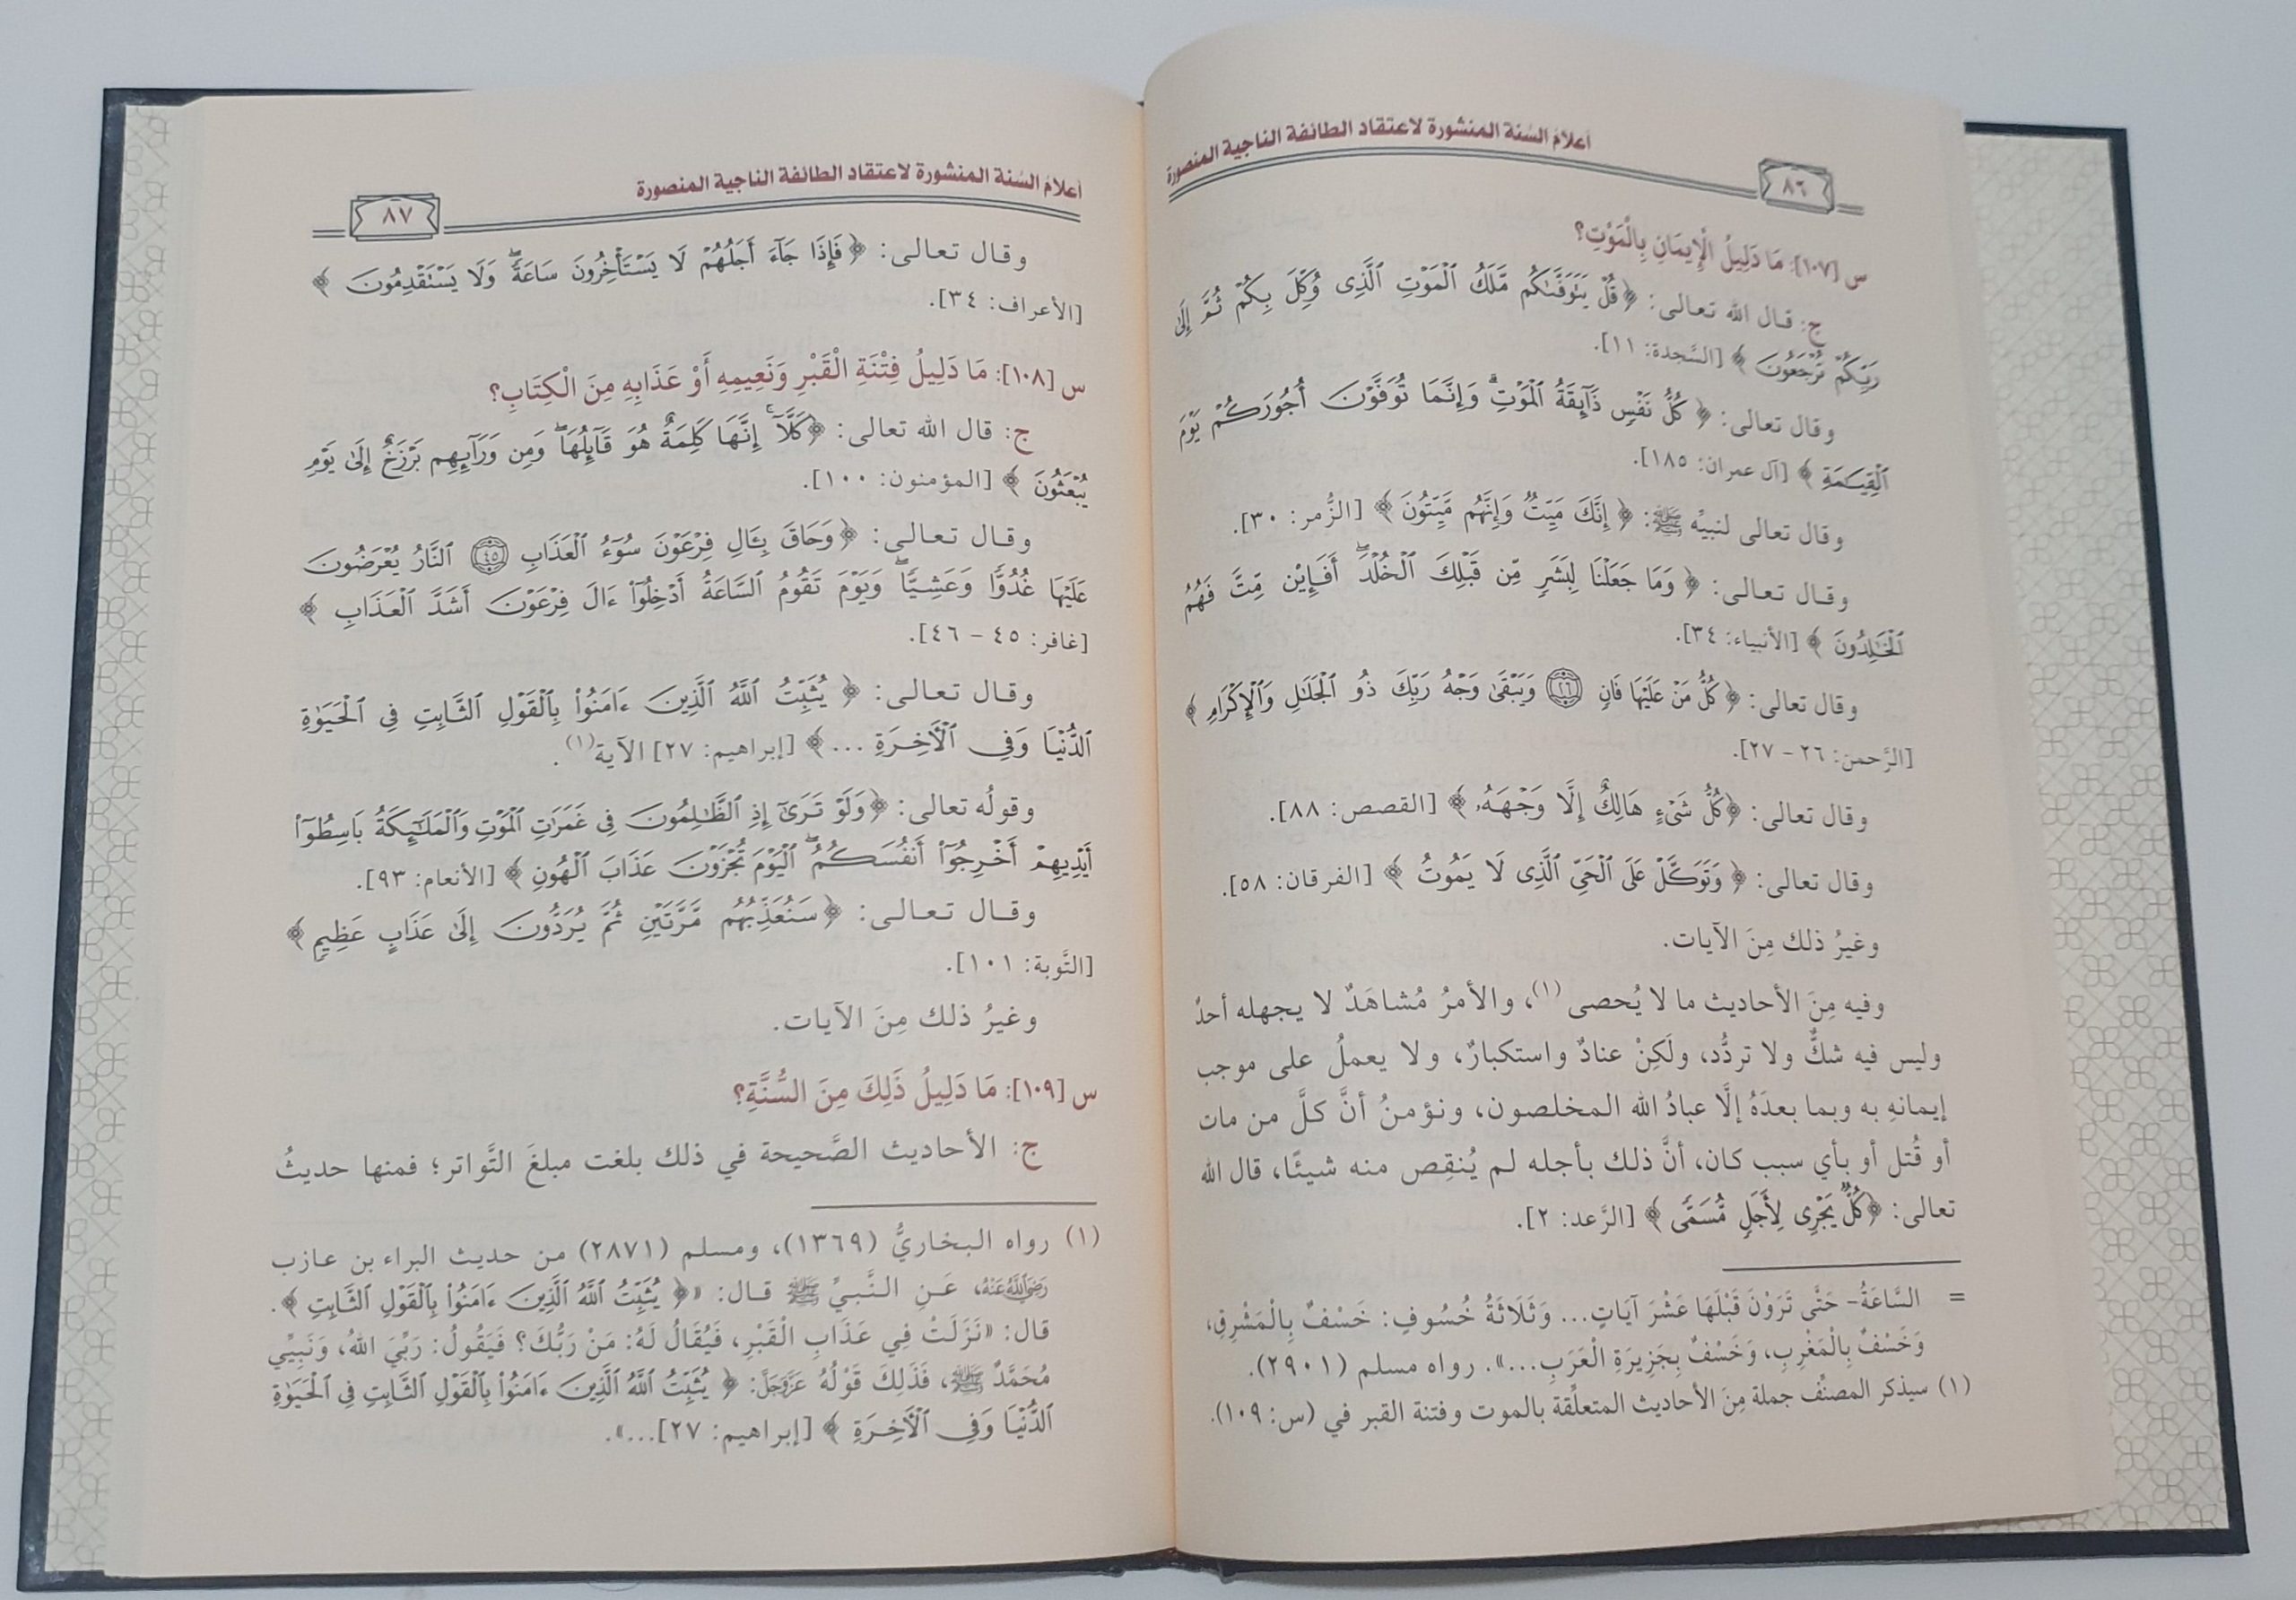 أعلام السنة المنشورة لاعتقاد الطائفة الناجية المنصورة
٨٦
س [١٠٧]: مَا دَلِيلُ الْإِيمَانِ بِالْمَوْتِ؟
ج: قال الله تعالى: ﴿قُلْ يَتَوَفَّىٰكُم مَّلَكُ ٱلْمَوْتِ ٱلَّذِى وُكِّلَ بِكُمْ ثُمَّ إِلَىٰ
رَبِّكُمْ تُرْجَعُونَ﴾ [السَّجدة: ١١].
وقال تعالى: ﴿كُلُّ نَفْسٍ ذَآئِقَةُ ٱلْمَوْتِ ۗ وَإِنَّمَا تُوَفَّوْنَ أُجُورَكُمْ يَوْمَ
ٱلْقِيَٰمَةِ﴾ [آل عمران: ١٨٥].
وقال تعالى لنبيِّه ﷺ: ﴿إِنَّكَ مَيِّتٌ وَإِنَّهُم مَّيِّتُونَ﴾ [الزُّمر: ٣٠].
وقال تعالى: ﴿وَمَا جَعَلْنَا لِبَشَرٍ مِّن قَبْلِكَ ٱلْخُلْدَ ۖ أَفَإِي۟ن مِّتَّ فَهُمُ
ٱلْخَٰلِدُونَ﴾ [الأنبياء: ٣٤].
وقال تعالى: ﴿كُلُّ مَنْ عَلَيْهَا فَانٍ ۝٢٦ وَيَبْقَىٰ وَجْهُ رَبِّكَ ذُو ٱلْجَلَٰلِ وَٱلْإِكْرَامِ﴾
[الرَّحمن: ٢٦ – ٢٧].
وقال تعالى: ﴿كُلُّ شَىْءٍ هَالِكٌ إِلَّا وَجْهَهُۥ﴾ [القصص: ٨٨].
وقال تعالى: ﴿وَتَوَكَّلْ عَلَى ٱلْحَىِّ ٱلَّذِى لَا يَمُوتُ﴾ [الفرقان: ٥٨].
وغيرُ ذلك مِنَ الآيات.
وفيه مِنَ الأحاديث ما لا يُحصى(١)، والأمرُ مُشاهَدٌ لا يجهله أحدٌ
وليس فيه شكٌّ ولا تردُّد، ولَكِنْ عنادٌ واستكبارٌ، ولا يعملُ على موجب
إيمانهِ به وبما بعدَهُ إلَّا عبادُ الله المخلصون، ونؤمنُ أنَّ كلَّ من مات
أو قُتل أو بأي سبب كان، أنَّ ذلك بأجله لم يُنقِص منه شيئًا، قال الله
تعالى: ﴿كُلٌّ يَجْرِى لِأَجَلٍ مُّسَمًّى﴾ [الرَّعد: ٢].
= السَّاعَةُ- حَتَّى تَرَوْنَ قَبْلَهَا عَشْرَ آيَاتٍ... وَثَلَاثَةُ خُسُوفٍ: خَسْفٌ بِالْمَشْرِقِ،
وَخَسْفٌ بِالْمَغْرِبِ، وَخَسْفٌ بِجَزِيرَةِ الْعَرَبِ...». رواه مسلم (٢٩٠١).
(١) سيذكر المصنِّف جملة مِنَ الأحاديث المتعلِّقة بالموت وفتنة القبر في (س: ١٠٩).
أعلام السنة المنشورة لاعتقاد الطائفة الناجية المنصورة
٨٧
وقال تعالى: ﴿فَإِذَا جَآءَ أَجَلُهُمْ لَا يَسْتَأْخِرُونَ سَاعَةً ۖ وَلَا يَسْتَقْدِمُونَ﴾
[الأعراف: ٣٤].
س [١٠٨]: مَا دَلِيلُ فِتْنَةِ الْقَبْرِ وَنَعِيمِهِ أَوْ عَذَابِهِ مِنَ الْكِتَابِ؟
ج: قال الله تعالى: ﴿كَلَّآ ۚ إِنَّهَا كَلِمَةٌ هُوَ قَآئِلُهَا ۖ وَمِن وَرَآئِهِم بَرْزَخٌ إِلَىٰ يَوْمِ
يُبْعَثُونَ﴾ [المؤمنون: ١٠٠].
وقال تعالى: ﴿وَحَاقَ بِـَٔالِ فِرْعَوْنَ سُوٓءُ ٱلْعَذَابِ ۝٤٥ ٱلنَّارُ يُعْرَضُونَ
عَلَيْهَا غُدُوًّا وَعَشِيًّا ۖ وَيَوْمَ تَقُومُ ٱلسَّاعَةُ أَدْخِلُوٓا۟ ءَالَ فِرْعَوْنَ أَشَدَّ ٱلْعَذَابِ﴾
[غافر: ٤٥ – ٤٦].
وقال تعالى: ﴿يُثَبِّتُ ٱللَّهُ ٱلَّذِينَ ءَامَنُوا۟ بِٱلْقَوْلِ ٱلثَّابِتِ فِى ٱلْحَيَوٰةِ
ٱلدُّنْيَا وَفِى ٱلْءَاخِرَةِ ...﴾ [إبراهيم: ٢٧] الآية(١).
وقولُه تعالى: ﴿وَلَوْ تَرَىٰٓ إِذِ ٱلظَّٰلِمُونَ فِى غَمَرَٰتِ ٱلْمَوْتِ وَٱلْمَلَٰٓئِكَةُ بَاسِطُوٓا۟
أَيْدِيهِمْ أَخْرِجُوٓا۟ أَنفُسَكُمُ ۖ ٱلْيَوْمَ تُجْزَوْنَ عَذَابَ ٱلْهُونِ﴾ [الأنعام: ٩٣].
وقال تعالى: ﴿سَنُعَذِّبُهُم مَّرَّتَيْنِ ثُمَّ يُرَدُّونَ إِلَىٰ عَذَابٍ عَظِيمٍ﴾
[التَّوبة: ١٠١].
وغيرُ ذلك مِنَ الآيات.
س [١٠٩]: مَا دَلِيلُ ذَلِكَ مِنَ السُّنَّةِ؟
ج: الأحاديث الصَّحيحة في ذلك بلغت مبلغَ التَّواتر؛ فمنها حديثُ
(١) رواه البخاريُّ (١٣٦٩)، ومسلم (٢٨٧١) من حديث البراء بن عازب
رَضِيَ اللَّهُ عَنْهُ، عَنِ النَّبيِّ ﷺ قال: «﴿يُثَبِّتُ ٱللَّهُ ٱلَّذِينَ ءَامَنُوا۟ بِٱلْقَوْلِ ٱلثَّابِتِ﴾.
قال: «نَزَلَتْ فِي عَذَابِ الْقَبْرِ، فَيُقَالُ لَهُ: مَنْ رَبُّكَ؟ فَيَقُولُ: رَبِّيَ اللهُ، وَنَبِيِّي
مُحَمَّدٌ ﷺ، فَذَلِكَ قَوْلُهُ عَزَّوَجَلَّ: ﴿يُثَبِّتُ ٱللَّهُ ٱلَّذِينَ ءَامَنُوا۟ بِٱلْقَوْلِ ٱلثَّابِتِ فِى ٱلْحَيَوٰةِ
ٱلدُّنْيَا وَفِى ٱلْءَاخِرَةِ﴾ [إبراهيم: ٢٧]...».